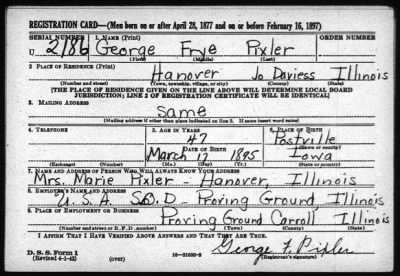 REGISTRATION CARD—(Men born on or after April 28, 1877 and on or before February 16, 1897)
SERIAL NUMBER 1. NAME (Print) ORDER NUMBER
U 2186 George Frye Pixler
(First) (Middle) (Last)
2. PLACE OF RESIDENCE (Print)
Hanover Jo Daviess Illinois
(Number and street) (Town, township, village, or city) (County) (State)
[THE PLACE OF RESIDENCE GIVEN ON THE LINE ABOVE WILL DETERMINE LOCAL BOARD
JURISDICTION; LINE 2 OF REGISTRATION CERTIFICATE WILL BE IDENTICAL]
3. MAILING ADDRESS
Same
[Mailing address if other than place indicated on line 2. If same insert word same]
4. TELEPHONE 5. AGE IN YEARS 6. PLACE OF BIRTH
47 Postville
DATE OF BIRTH (Town or county)
March 17 1895 Iowa
(Exchange) (Number) (Mo.) (Day) (Yr.) (State or country)
7. NAME AND ADDRESS OF PERSON WHO WILL ALWAYS KNOW YOUR ADDRESS
Mrs. Marie Pixler - Hanover Illinois
8. EMPLOYER'S NAME AND ADDRESS
U.S.A. S.O.D - Proving Ground, Illinois
9. PLACE OF EMPLOYMENT OR BUSINESS
Proving Ground Carroll Illinois
(Number and street or R. F. D. number) (Town) (County) (State)
I AFFIRM THAT I HAVE VERIFIED ABOVE ANSWERS AND THAT THEY ARE TRUE.
George F. Pixler
D. S. S. Form 1
(Revised 4-1-42) (over) (Registrant's signature)